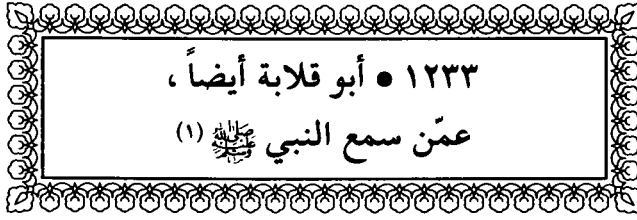 ١٢٣٣ • أبو قلابة أيضاً ،
عمّن سمع النبي ﷺ (١)